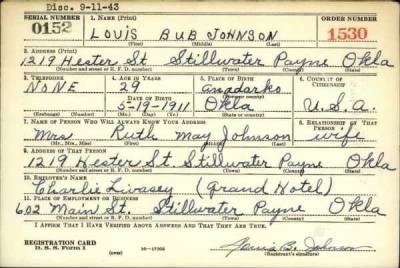 Disc. 9-11-43
SERIAL NUMBER 1. NAME (Print) ORDER NUMBER
0152 LOUIS BUB JOHNSON 1530
(First) (Middle) (Last)
2. ADDRESS (Print)
1219 Hester St Stillwater Payne Okla
(Number and street or R. F. D. number) (Town) (County) (State)
3. TELEPHONE 4. AGE IN YEARS 5. PLACE OF BIRTH 6. COUNTRY OF CITIZENSHIP
NONE 29 Anadarko
DATE OF BIRTH (Town or county)
5-19-1911 Okla U.S.A.
(Exchange) (Number) (Mo.) (Day) (Yr.) (State or country)
7. NAME OF PERSON WHO WILL ALWAYS KNOW YOUR ADDRESS 8. RELATIONSHIP OF THAT PERSON
Mrs Ruth May Johnson wife
(Mr., Mrs., Miss) (First) (Middle) (Last)
9. ADDRESS OF THAT PERSON
1219 Hester St. Stillwater Payne Okla
(Number and street or R. F. D. number) (Town) (County) (State)
10. EMPLOYER'S NAME
Charlie Livasey (Grand Hotel)
11. PLACE OF EMPLOYMENT OR BUSINESS
602 Main St. Stillwater Payne Okla
(Number and street or R. F. D. number) (Town) (County) (State)
I AFFIRM THAT I HAVE VERIFIED ABOVE ANSWERS AND THAT THEY ARE TRUE.
REGISTRATION CARD
D. S. S. Form 1 (over) Louis B. Johnson
(Registrant's signature)